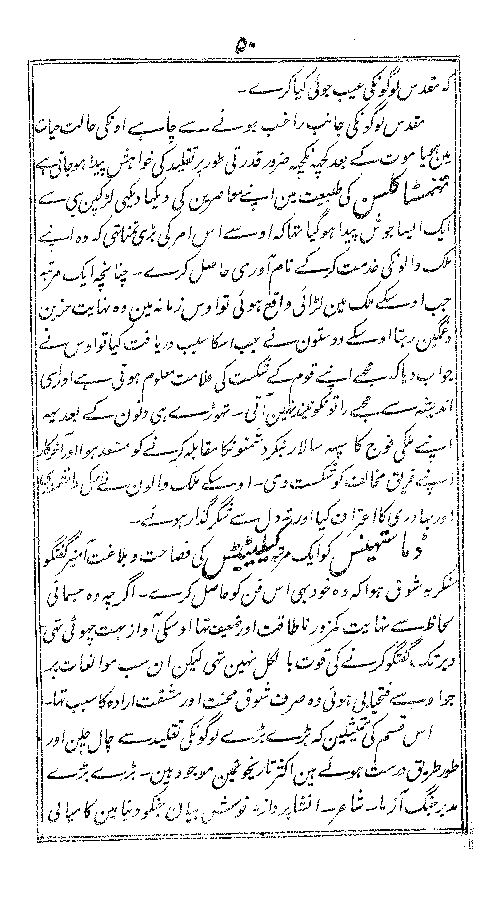 ۵۰
کہ مقدس لوگونکی عیب جوئی کیا کرے۔
مقدس لوگونکی جانب راغب ہونے سے چاہے اونکی حالت حیات
مین ہو یا موت کے بعد کچہہ نکچہہ ضرور قدرتی طور پر تقلید کی خواہش پیدا ہو جاتی ہے
کی طبیعت مین اپنے معاصرین کی دیکہا دیکہی لڑکپن ہی سے
ایک ایسا جوش پیدا ہو گیا تہا کہ اوسے اس امر کی بڑی تمنا تہی کہ وہ اپنے
ملک والونکی خدمت کرکے نام آوری حاصل کرے۔ چنانچہ ایک مرتبہ
جب اوسکے ملک مین لڑائی واقع ہوئی تو اوس زمانہ مین وہ نہایت حزین
و غمگین رہتا اوسکے دوستون نے جب اسکا سبب دریافت کیا تو اوس نے
جواب دیا کہ مجہے اپنے قوم کے شکست کی علامت معلوم ہوتی ہے اور اسی
اندیشہ سے مجہے راتونکو نیند نہین آتی۔ تہوڑے ہی دنون کے بعد یہہ
اپنے ملکی فوج کا سپہ سالار بنکر دشمنونکا مقابلہ کرنے کو مستعد ہوا اور آخرکار
اپنے فریق مخالف کو شکست دی۔ اوسکے ملک والون نے اسکی دانشمندی
اور بہادری کا اعتراف کیا اور تہ دل سے شکر گذار ہوئے۔
ڈماستہینس کو ایک مرتبہ کی فصاحت و بلاغت آمیز گفتگو
سنکر یہ شوق ہوا کہ وہ خود بہی اس فن کو حاصل کرے۔ اگرچہ وہ جسمانی
لحاظ سے نہایت کمزور ناطاقت اور ضعیف تہا اوسکی آواز بہت چہوٹی تہی
دیر تک گفتگو کرنے کی قوت بالکل نہین تہی لیکن ان سب موانعات پر
جو اوسے فتحیابی ہوئی وہ صرف شوق محنت اور مشقت ارادہ کا سبب تہا۔
اس قسم کی تمثیلین کہ بڑے بڑے لوگونکی تقلید سے چال چلن اور
طور طریق درست ہوئے ہین اکثر تاریخونمین موجود ہین۔ بڑے بڑے
مدبر جنگ آزما۔ شاعر۔ انشا پرداز۔ خوش بیان جنکو دنیا مین کامیابی